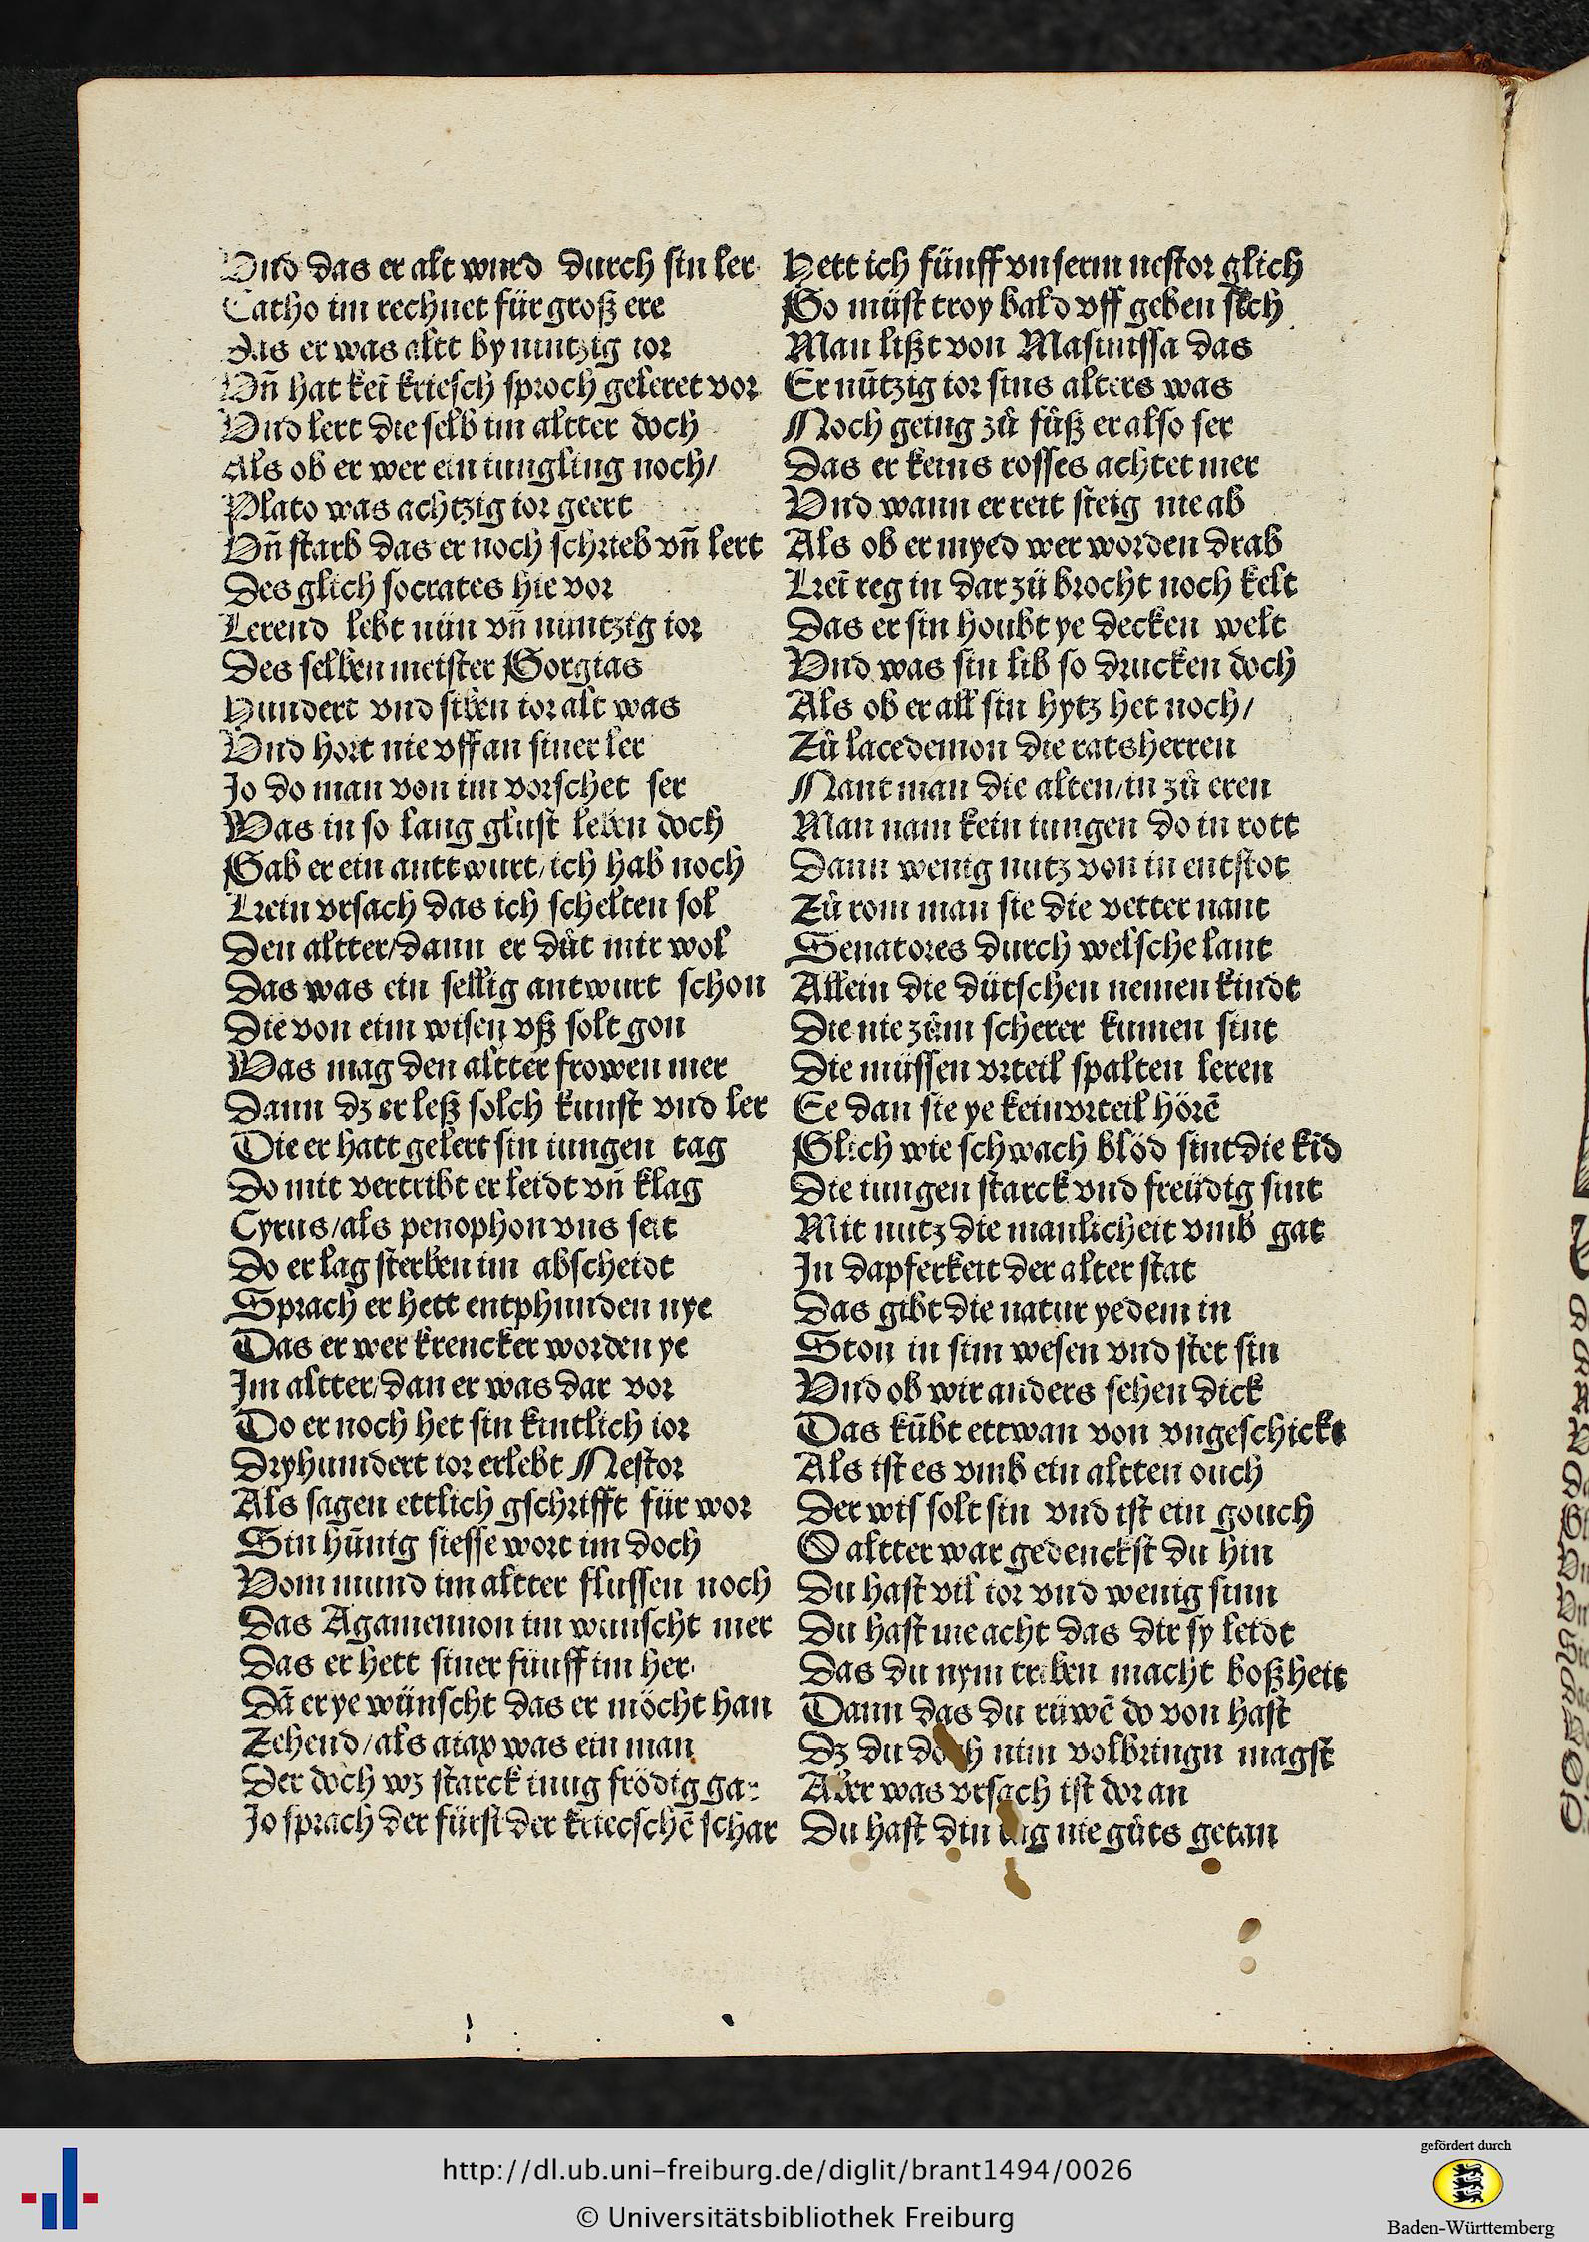 Vnd das er alt wurd durch sin ler
Catho im rechnet für groß ere
das er was altt by nuntzig ior
Vñ hat kei͞ kriesch sproch geleret vor
Vnd lert die selb im altter doch
Als ob er wer ein iungling noch/
Plato was achtzig ior geert
Vñ starb das er noch schrieb vñ lert
Des glich socrates hie vor
Lerend lebt nün vñ nüntzig ior
Des selben meister Gorgias
Hundert vnd siben ior alt was
Vnd hort nie vff an siner ler
Jo do man von im vorschet ser
Was in so lang glust leben doch
Gab er ein anttwurt/ich hab noch
Kein vrsach das ich schelten sol
Den altter/dann er důt mir wol
Das was ein sellig antwurt schon
Die von eim wisen vß solt gon
Was mag den altter frowen mer
Dann dz er leß solch kunst vnd ler
Die er hatt gelert sin iungen tag
Do mit vertribt er leidt vñ klag
Cyrus/als penophon vns seit
Do er lag sterben im abscheidt
Sprach er hett entphunden nye
Das er wer krencker worden ye
Im altter/dan er was dar vor
Do er noch het sin kintlich ior
Dryhundert ior erlebt Nestor
Als sagen ettlich gschrifft für wor
Sin hũnig siesse wort im doch
Vom mund im altter flussen noch
Das Agamennon im wunscht mer
Das er hett siner fünff im her
Dã er ye wünscht das er möcht han
Zehend/als aiax was ein man
Der doch wz starck iung frödig gar
Jo sprach der fürst der kriecschẽ schar
Hett ich fünff vnserm nestor glich
So müst troy bald vff geben sich
Man lißt von Masinissa das
Er nũtzig ior sins alters was
Noch geing zů fůß er also ser
Das er keins rosses achtet mer
Vnd wann er reit steig nie ab
Als ob er myed wer worden drab
Kei͞ reg in dar zů brocht noch kelt
Das er sin houbt ye decken welt
Vnd was sin lib so drucken doch
Als ob er all sin hytz het noch/
Zů lacedemon die ratsherren
Nant man die alten/in zů eren
Man nam kein iungen do in rott
Dann wenig nutz von in entstot
Zů rom man sie die vetter nant
Senatores durch welsche lant
Allein die dütschen nemen kindt
Die nie zům scherer kumen sint
Die müssen vrteil spalten leren
Ee dan sie ye kein vrteil hörẽ
Glich wie schwach blöd sint die kĩd
Die iungen starck vnd freüdig sint
Mit nutz die manlicheit vmb gat
In dapferkeit der alter stat
Das gibt die natur yedem in
Ston in sim wesen vnd stet sin
Vnd ob wir anders sehen dick
Das kũbt ettwan von vngeschickt
Als ist es vmb ein altten ouch
Der wis solt sin vnd ist ein gouch
O altter war gedenckst du hin
Du hast vil ior vnd wenig sinn
Du hast nie acht das dir sy leidt
Das du nym triben macht boßheit
Dann das du rüwẽ do von hast
Dz du doch nim volbringn magst
Aber was vrsach ist dor an
Du hast din tag nie gůts getan
http://dl.ub.uni-freiburg.de/diglit/brant1494/0026
© Universitätsbibliothek Freiburg
gefördert durch
Baden-Württemberg